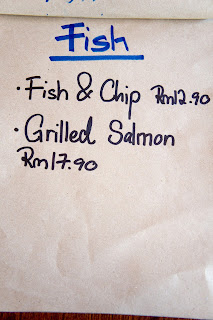 Fish
· Fish & Chip Rm12.90
· Grilled Salmon
Rm17.90